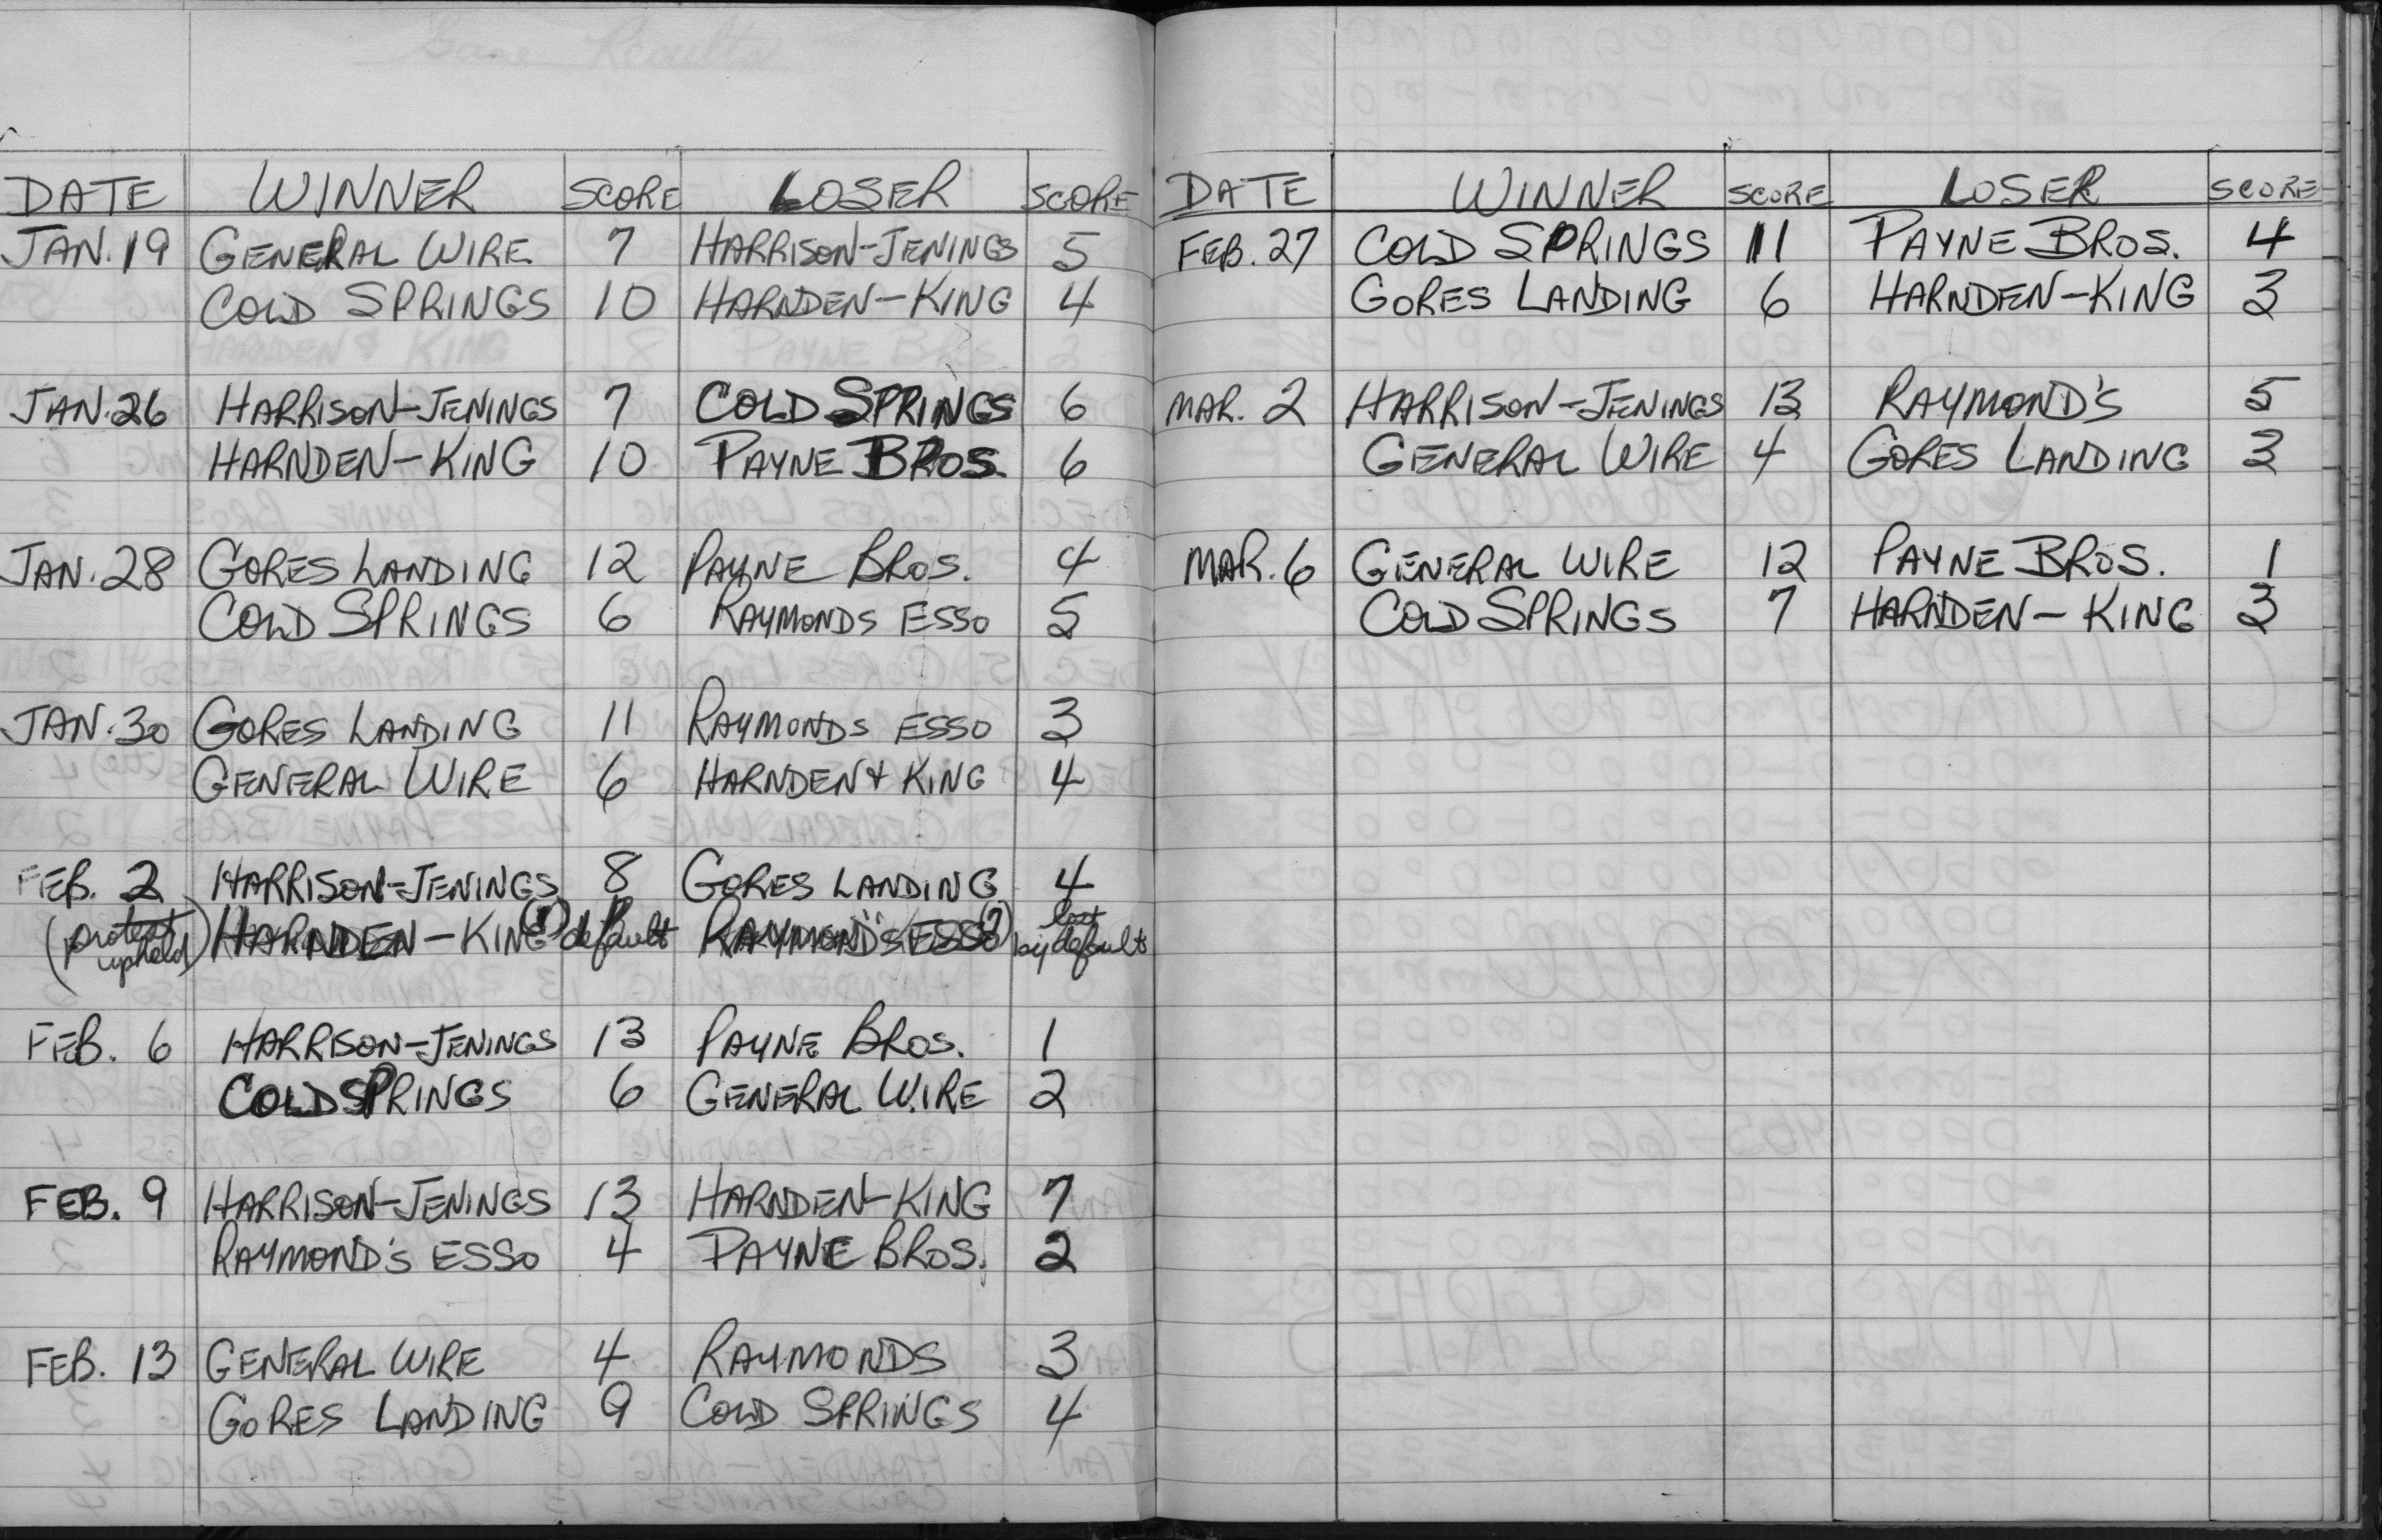 DATE WINNER SCORE LOSER SCORE
JAN. 19 GENERAL WIRE 7 HARRISON-JENINGS 5
COLD SPRINGS 10 HARNDEN-KING 4
JAN. 26 HARRISON-JENINGS 7 COLD SPRINGS 6
HARNDEN-KING 10 PAYNE BROS. 6
JAN. 28 GORES LANDING 12 PAYNE BROS. 4
COLD SPRINGS 6 RAYMONDS ESSO 5
JAN. 30 GORES LANDING 11 RAYMONDS ESSO 3
GENERAL WIRE 6 HARNDEN & KING 4
FEB. 2 HARRISON-JENINGS 8 GORES LANDING 4
(protest upheld) HARNDEN-KING default RAYMOND'S ESSO lost by default
FEB. 6 HARRISON-JENINGS 13 PAYNE BROS. 1
COLD SPRINGS 6 GENERAL WIRE 2
FEB. 9 HARRISON-JENINGS 13 HARNDEN-KING 7
RAYMOND'S ESSO 4 PAYNE BROS. 2
FEB. 13 GENERAL WIRE 4 RAYMONDS 3
GORES LANDING 9 COLD SPRINGS 4
DATE WINNER SCORE LOSER SCORE
FEB. 27 COLD SPRINGS 11 PAYNE BROS. 4
GORES LANDING 6 HARNDEN-KING 3
MAR. 2 HARRISON-JENINGS 13 RAYMOND'S 5
GENERAL WIRE 4 GORES LANDING 3
MAR. 6 GENERAL WIRE 12 PAYNE BROS. 1
COLD SPRINGS 7 HARNDEN-KING 3